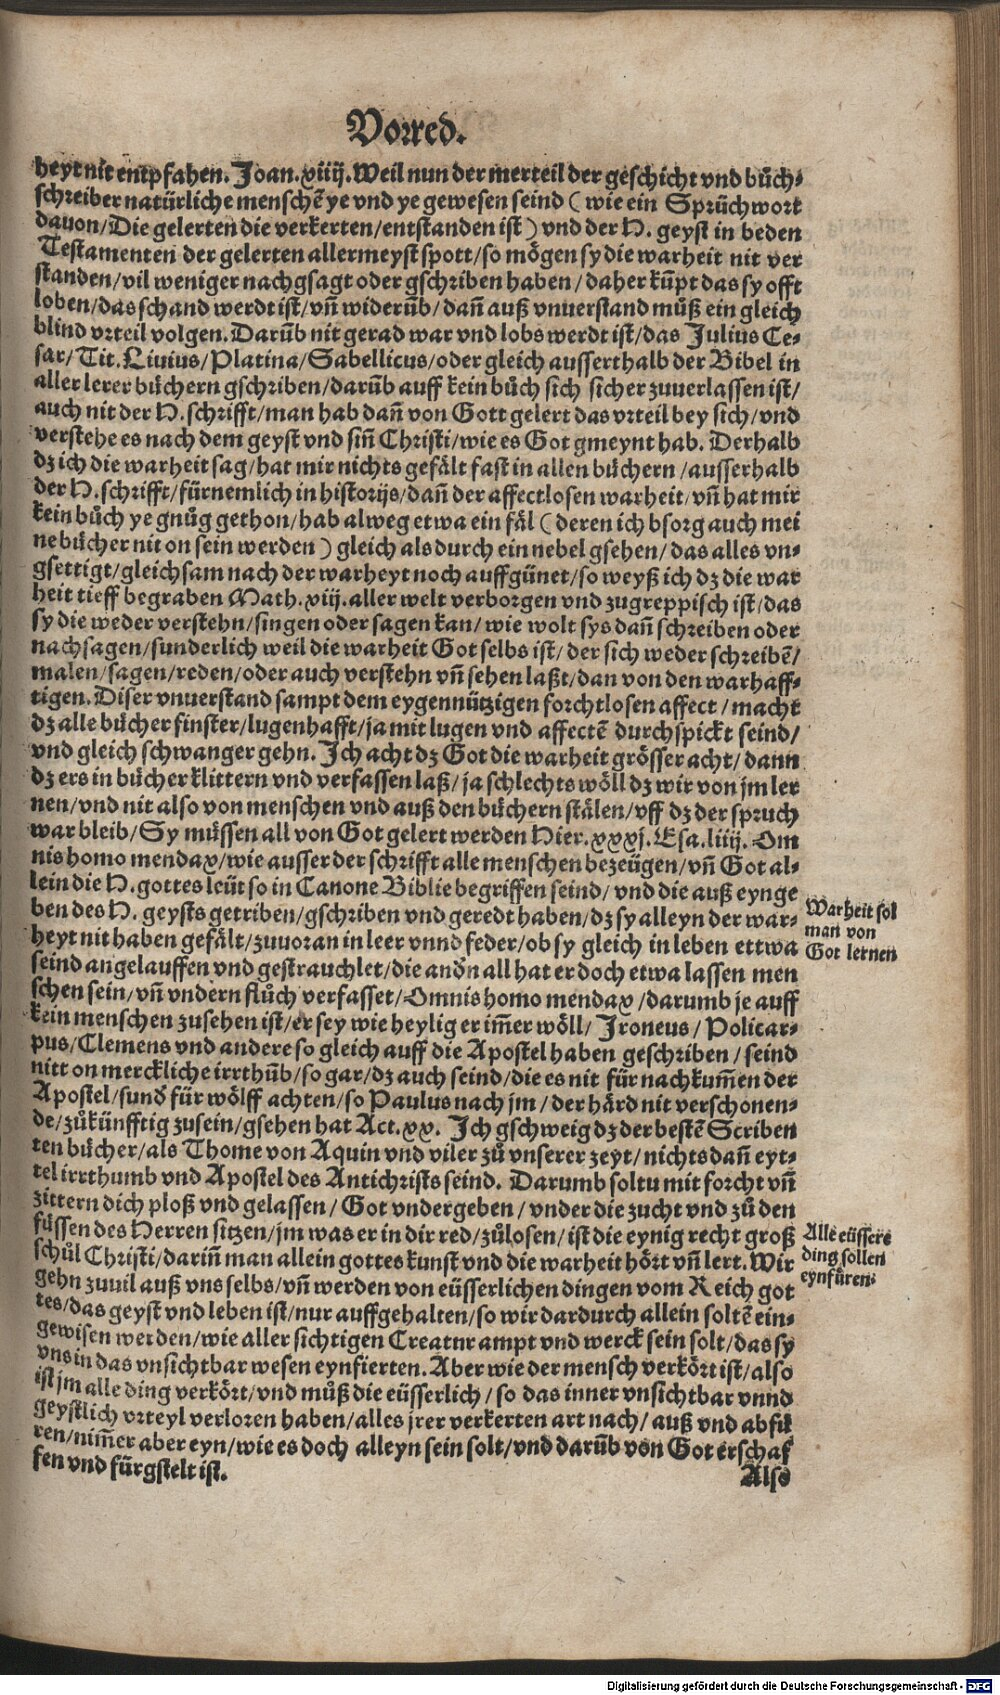 Vorred.
heyt nit empfahen. Joan. xiiij. Weil nun der merteil der geschicht vnd bůch-
schreiber natürliche menschē ye vnd ye gewesen seind ( wie ein Sprüchwort
dauon/Die gelerten die verkerten/entstanden ist ) vnd der H. geyst in beden
Testamenten der gelerten allermeyst spott/so mögen sy die warheit nit ver
standen/vil weniger nachgsagt oder gschriben haben/daher kūpt das sy offt
loben/das schand werdt ist/vn̄ widerūb/dan̄ auß vnuerstand můß ein gleich
blind vrteil volgen. Darūb nit gerad war vnd lobs werdt ist/das Julius Ce-
sar/Tit. Liuius/Platina/Sabellicus/oder gleich ausserthalb der Bibel in
aller lerer bůchern gschriben/darūb auff kein bůch sich sicher zuuerlassen ist/
auch nit der H. schrifft/man hab dan̄ von Gott gelert das vrteil bey sich/vnd
verstehe es nach dem geyst vnd sin̄ Christi/wie es Got gmeynt hab. Derhalb
dz ich die warheit sag/hat mir nichts gefält fast in allen bůchern/ausserhalb
der H. schrifft/fürnemlich in historijs/dan̄ der affectlosen warheit/vn̄ hat mir
kein bůch ye gnůg gethon/hab alweg etwa ein fäl ( deren ich bsorg auch mei
ne bůcher nit on sein werden ) gleich als durch ein nebel gsehen/das alles vn-
gsettigt/gleichsam nach der warheyt noch auffgünet/so weyß ich dz die war
heit tieff begraben Math. xiij. aller welt verborgen vnd zugreppisch ist/das
sy die weder verstehn/singen oder sagen kan/wie wolt sys dan̄ schreiben oder
nachsagen/sunderlich weil die warheit Got selbs ist/der sich weder schreibē/
malen/sagen/reden/oder auch verstehn vn̄ sehen laßt/dan von den warhaff-
tigen. Diser vnuerstand sampt dem eygennützigen forchtlosen affect/macht
dz alle bůcher finster/lugenhafft/ja mit lugen vnd affectē durchspickt seind/
vnd gleich schwanger gehn. Ich acht dz Got die warheit grösser acht/dann
dz ers in bůcher klittern vnd verfassen laß/ja schlechts wöll dz wir von jm ler
nen/vnd nit also von menschen vnd auß den bůchern stälen/vff dz der spruch
war bleib/Sy můssen all von Got gelert werden Hier. xxxj. Esa. liiij. Om
nis homo mendax/wie ausser der schrifft alle menschen bezeügen/vn̄ Got al-
lein die H. gottes leüt so in Canone Biblie begriffen seind/vnd die auß eynge
ben des H. geysts getriben/gschriben vnd geredt haben/dz sy alleyn der war-
heyt nit haben gefält/zuuoran in leer vnnd feder/ob sy gleich in leben ettwa
seind angelauffen vnd gestrauchlet/die andn all hat er doch etwa lassen men
schen sein/vn̄ vndern flůch verfasset/Omnis homo mendax/darumb je auff
kein menschen zusehen ist/er sey wie heylig er im̄er wöll/Ironeus/Policar-
pus/Clemens vnd andere so gleich auff die Apostel haben geschriben/seind
nitt on merckliche irrthūb/so gar/dz auch seind/die es nit für nachkum̄en der
Apostel/sund für wölff achten/so Paulus nach jm/der härd nit verschonen-
de/zůkünfftig zusein/gsehen hat Act. xx. Ich gschweig dz der bestē Scriben
ten bůcher/als Thome von Aquin vnd viler zů vnserer zeyt/nichts dan̄ eyt-
tel irrthumb vnd Apostel des Antichrists seind. Darumb soltu mit forcht vn̄
zittern dich ploß vnd gelassen/Got vndergeben/vnder die zucht vnd zů den
füssen des Herren sitzen/jm was er in dir red/zůlosen/ist die eynig recht groß
schůl Christi/darin̄ man allein gottes kunst vnd die warheit hört vn̄ lert. Wir
gehn zuuil auß vns selbs/vn̄ werden von eüsserlichen dingen vom Reich got
tes/das geyst vnd leben ist/nur auffgehalten/so wir dardurch allein soltē ein-
gewisen werden/wie aller sichtigen Creatur ampt vnd werck sein solt/das sy
vns in das vnsichtbar wesen eynfierten. Aber wie der mensch verkört ist/also
ist jm alle ding verkört/vnd můß die eüsserlich/so das inner vnsichtbar vnnd
geystlich vrteyl verloren haben/alles jrer verkerten art nach/auß vnd abfü
ren/nim̄er aber eyn/wie es doch alleyn sein solt/vnd darūb von Got erschaf
fen vnd fürgstelt ist.
Also
Warheit sol
man von
Got lernen
Alle eüssere
ding sollen
eynfüren.
Digitalisierung gefördert durch die Deutsche Forschungsgemeinschaft - DFG